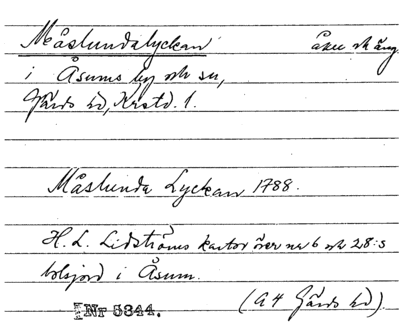 Måslundalyckan åker och äng
i Åsums by och sn,
Gärds hd, Krstd. l.
Måslunda Lyckan 1788.
H. L. Lidströms kartor över nr 6 och 28:s
bolsjord i Åsum.
(A4 Gärds hd).
Nr 5344.